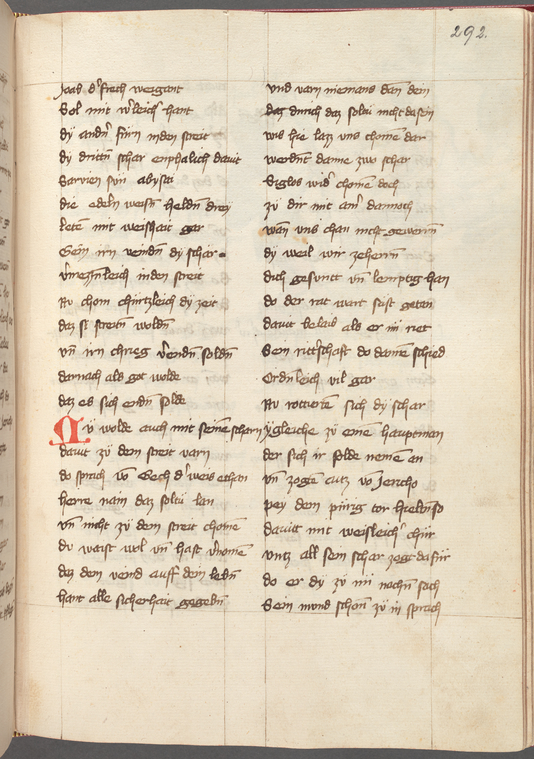 292.
Joab d' frech weigant
Sol mit w'leich' hant
dy andn' furn inden streit
dy drittn schar enphalich dauit
Sarvien sun abysai
die edeln weisn heldn drey
letn mit weishait gar
Gein irn veindn dy schar
v'mezznleich inden streit
Nu chom churtzleich dy zeit
daz si streitn woldn
vn irn chrieg v'endn soldn
darnach als got wolde
daz es sich endn solde
Nu wolde auch mit seine scharn
dauit zu dem streit varn
do sprach vo Gech d' weis ethan
herre nain daz soltu lan
vn nicht zu dem streit chome
du waist wol vn hast v'nome
daz dem veind auff dein lebn
hant alle sicherhait gegebn
vnd varn niemans dan dein
daz durich daz soltu nicht da sein
wis hie lazz vns chome dar
werdnt danne zwo schar
Siglos wid' chome doch
zu dir mit am' dannoch
wan vns chan nicht gewerrn
dy weil wir zeherrn
dich gesuntt vn lemptig han
do der rat wart sust getan
dauit belaib als er im riet
Sein ritt'schaft do danne schied
Ordnleich vil gar
Nu rottierte sich dy schar
ygleiche zu eine hauptman
der sich ir solde neme an
vn zogte auz vo Jericho
pey dem purig tor hielt so
dauitt mit weisleich' chur
vntz all sein schar zogt da fur
do er dy zu im nachn sach
Sein mund schon zu in sprach